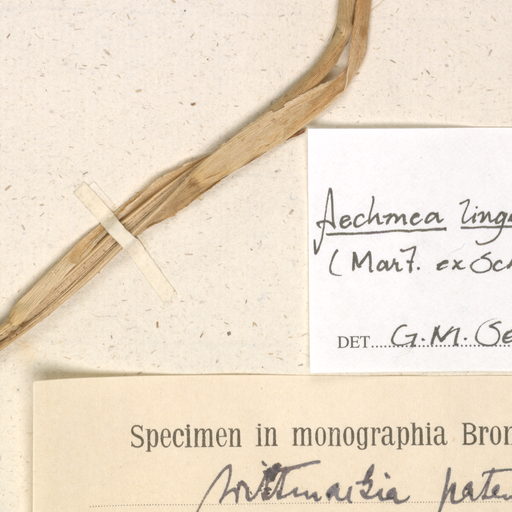 Aechmea zing
(Mart. ex Sch
DET G.M. Se
Specimen in monographia Bron
Wittmackia paten